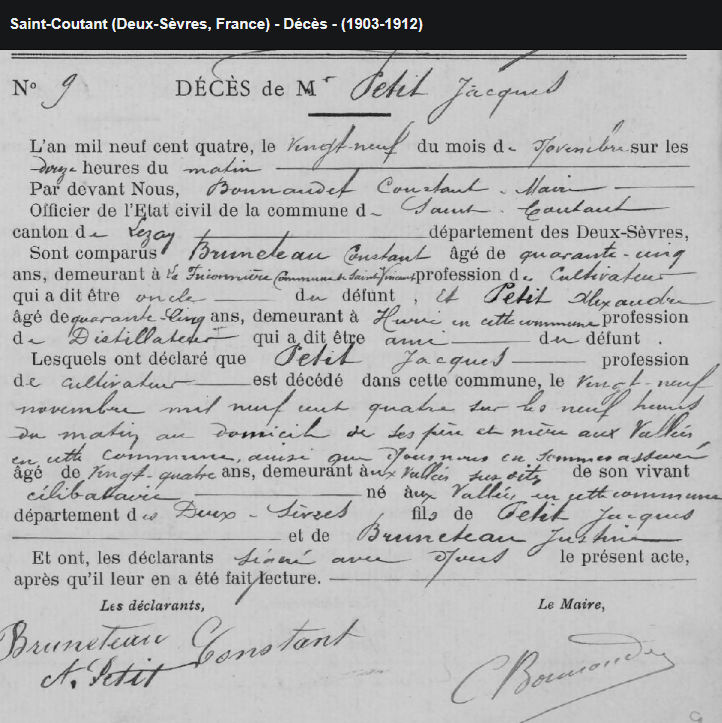 Saint-Coutant (Deux-Sèvres, France) - Décès - (1903-1912)
N° 9 DÉCÈS de Mr Petit Jacques
L'an mil neuf cent quatre, le vingt-neuf du mois de Novembre sur les
douze heures du matin
Par devant Nous, Bonnaudet Constant, Maire
Officier de l'Etat civil de la commune de Saint-Coutant
canton de Lezay département des Deux-Sèvres,
Sont comparus Bruneteau Constant âgé de quarante-cinq
ans, demeurant à la commune de Saint Vincent profession de Cultivateur
qui a dit être oncle du défunt, et Petit Alexandre
âgé de quarante cinq ans, demeurant à en cette commune profession
de Distillateur qui a dit être ami du défunt.
Lesquels ont déclaré que Petit Jacques profession
de cultivateur est décédé dans cette commune, le vingt-neuf
novembre mil neuf cent quatre sur les neuf heures
du matin au domicile de ses père et mère aux Vallées
en cette commune, ainsi que nous nous en sommes assuré
âgé de vingt-quatre ans, demeurant aux Vallées sus dites de son vivant
célibataire né aux Vallées en cette commune
département des Deux-Sèvres fils de Petit Jacques
et de Bruneteau Justine
Et ont, les déclarants signé avec Nous le présent acte,
après qu'il leur en a été fait lecture.
Les déclarants, Le Maire,
Bruneteau Constant
A. Petit